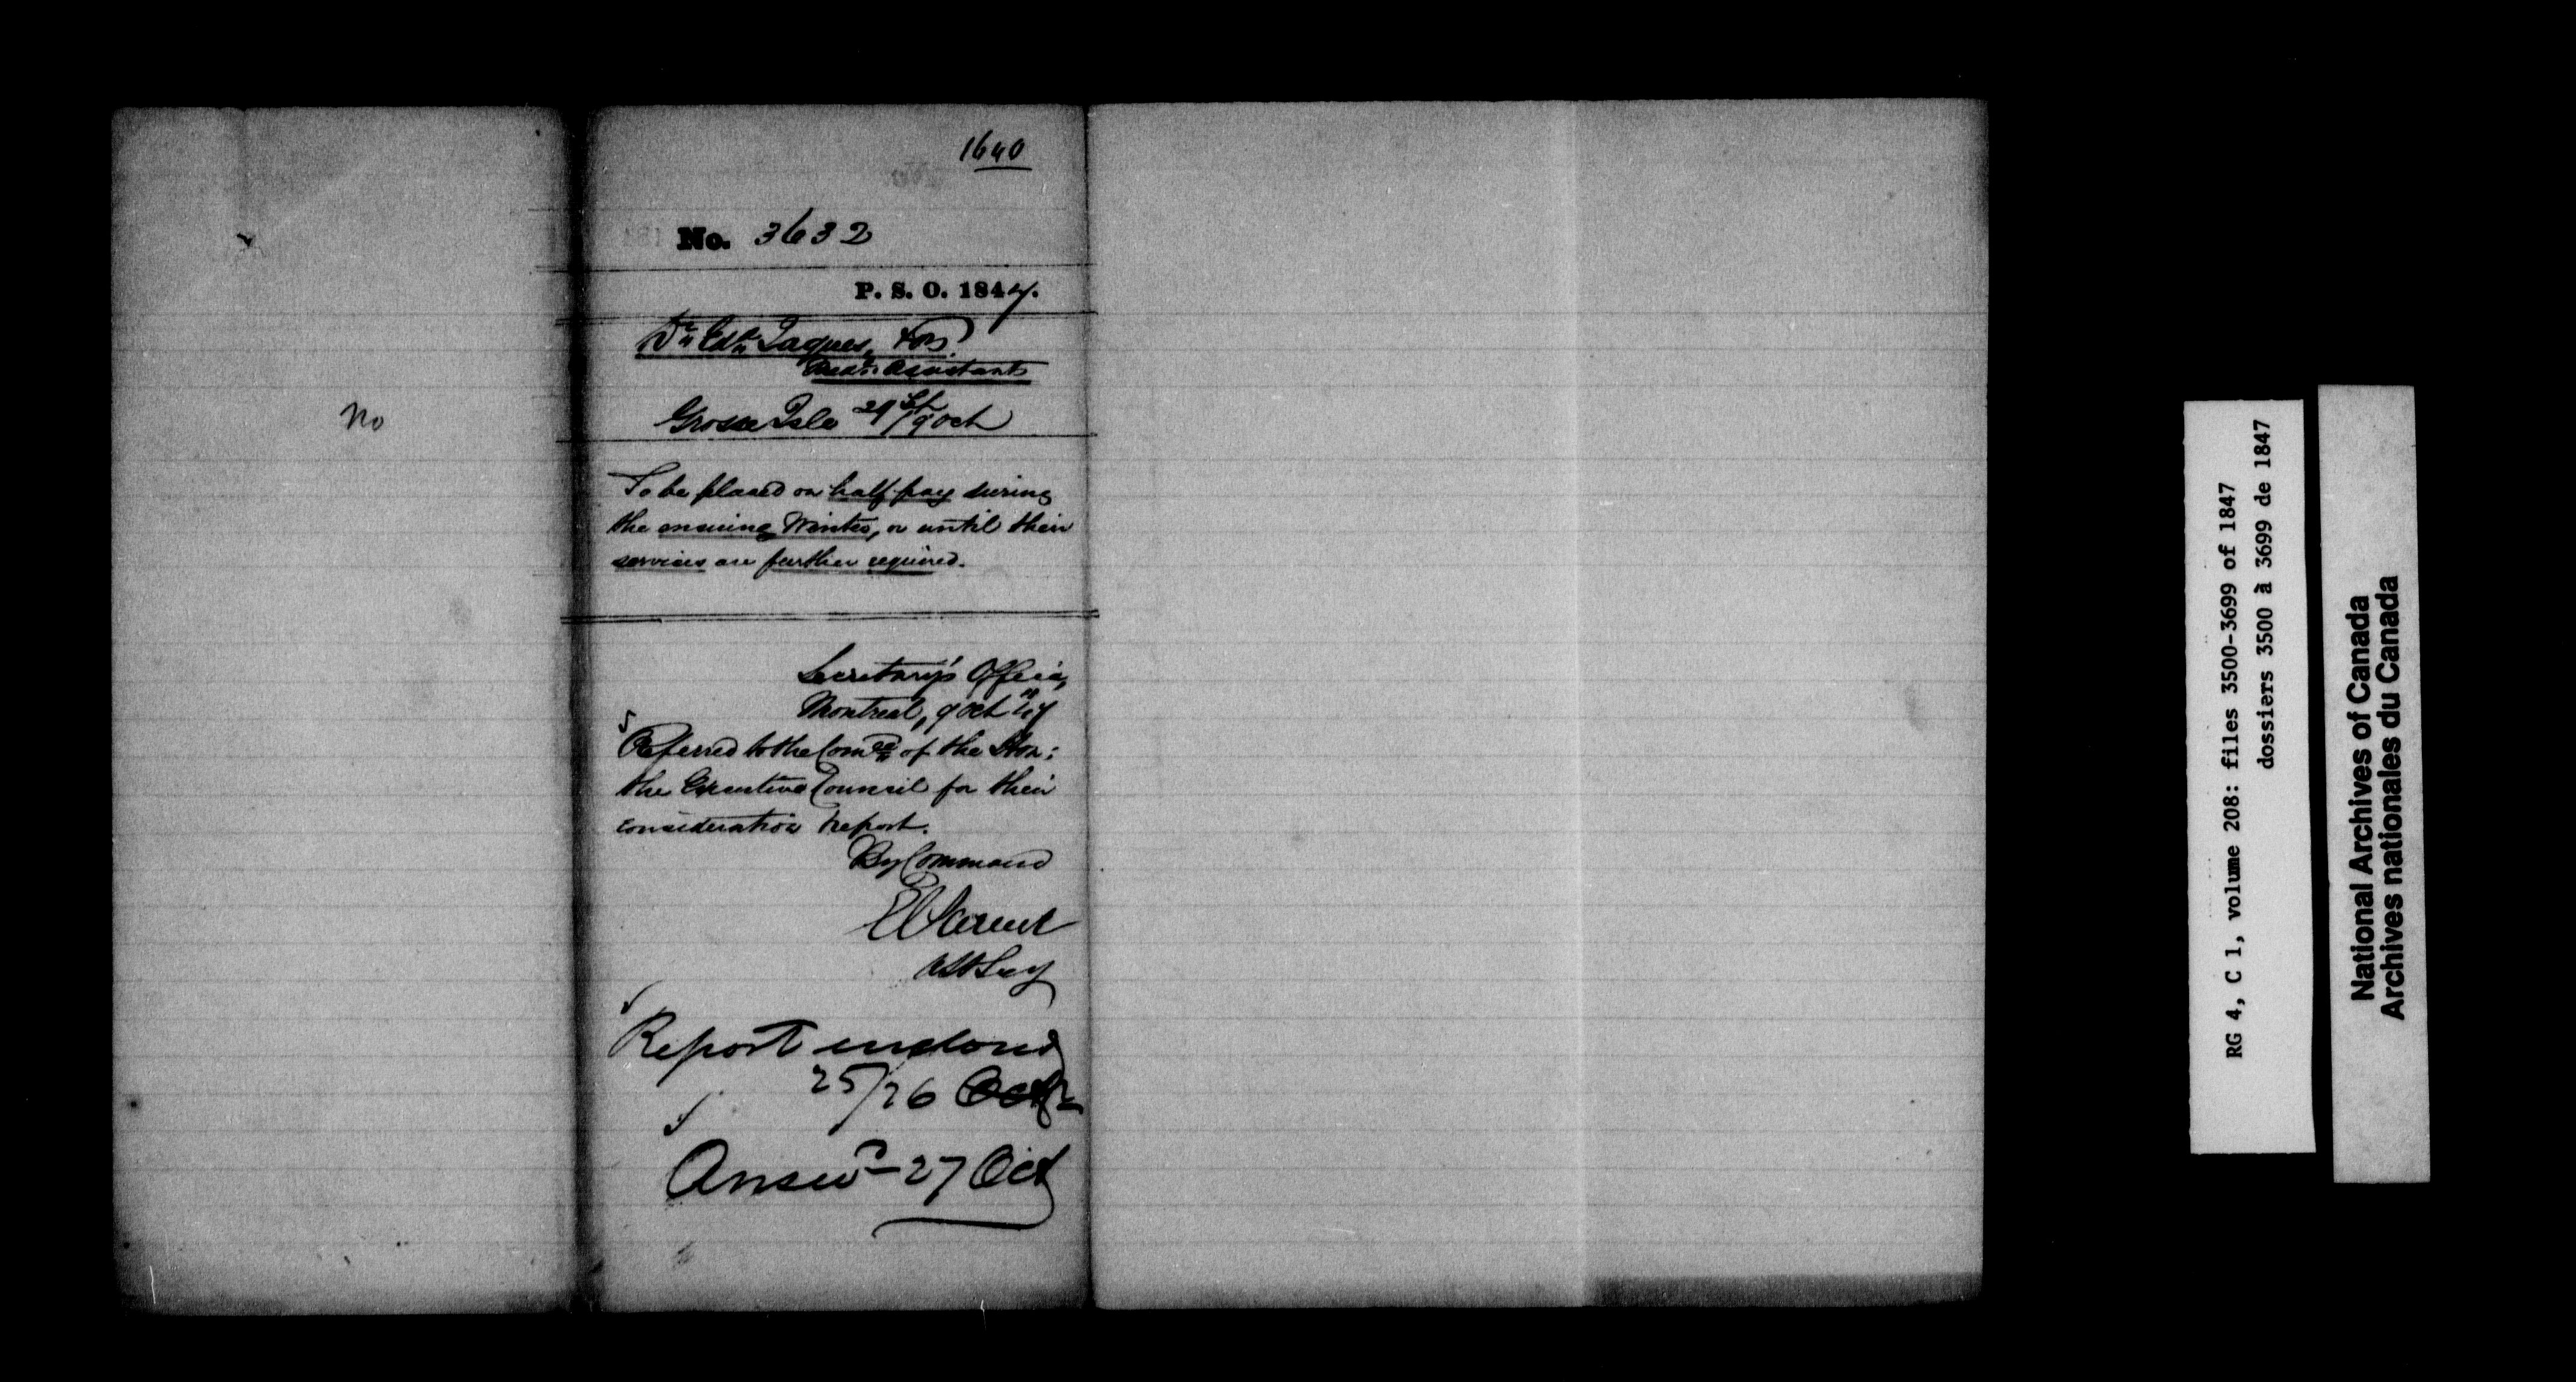 No
1640
No. 3632
P. S. O. 1847.
Dr. Jaques, &ors.
Med: Assistants
Grosse Isle 29 Sep/9 Oct
To be placed on half pay during
the ensuing Winter, or until their
services are further required.
Secretary's Office,
Montreal, 9 Oct 47
Referred to the Comee of the Hon:
the Executive Council for their
consideration & report.
By Command
E Parent
Asst Secy
Report enclosed
25/26 Octr
Answd - 27 Oct
RG 4, C 1, volume 208: files 3500-3699 of 1847
dossiers 3500 à 3699 de 1847
National Archives of Canada
Archives nationales du Canada